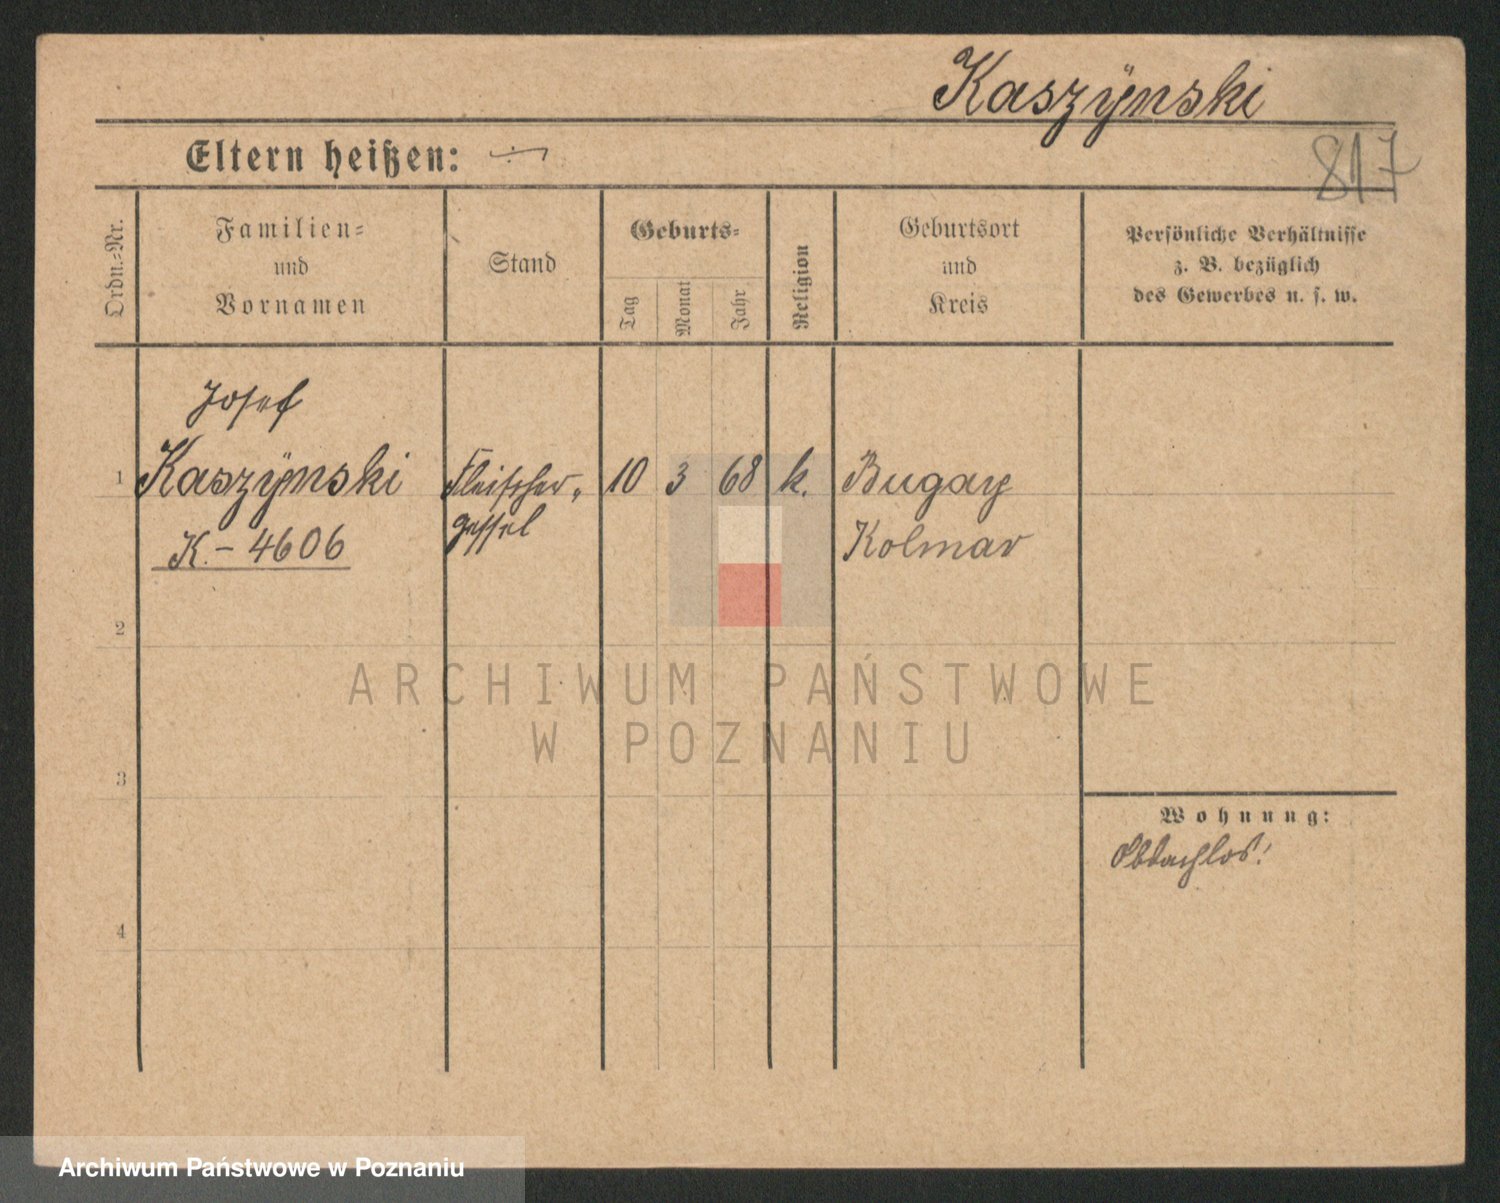 Kaszÿnski
817
Eltern heißen: ÷
Ordn.-Nr.
Familien-
und
Vornamen
Stand
Geburts-
Tag
Monat
Jahr
Religion
Geburtsort
und
Kreis
Persönliche Verhältnisse
z. B. bezüglich
des Gewerbes u. s. w.
Josef
1 Kaszÿnski Fleischer- 10 3 68 k. Bugay
K.- 4606 gessel Kolmar
2
ARCHIWUM PAŃSTWOWE
W POZNANIU
3
Wohnung:
Obdachlos!
4
Archiwum Państwowe w Poznaniu